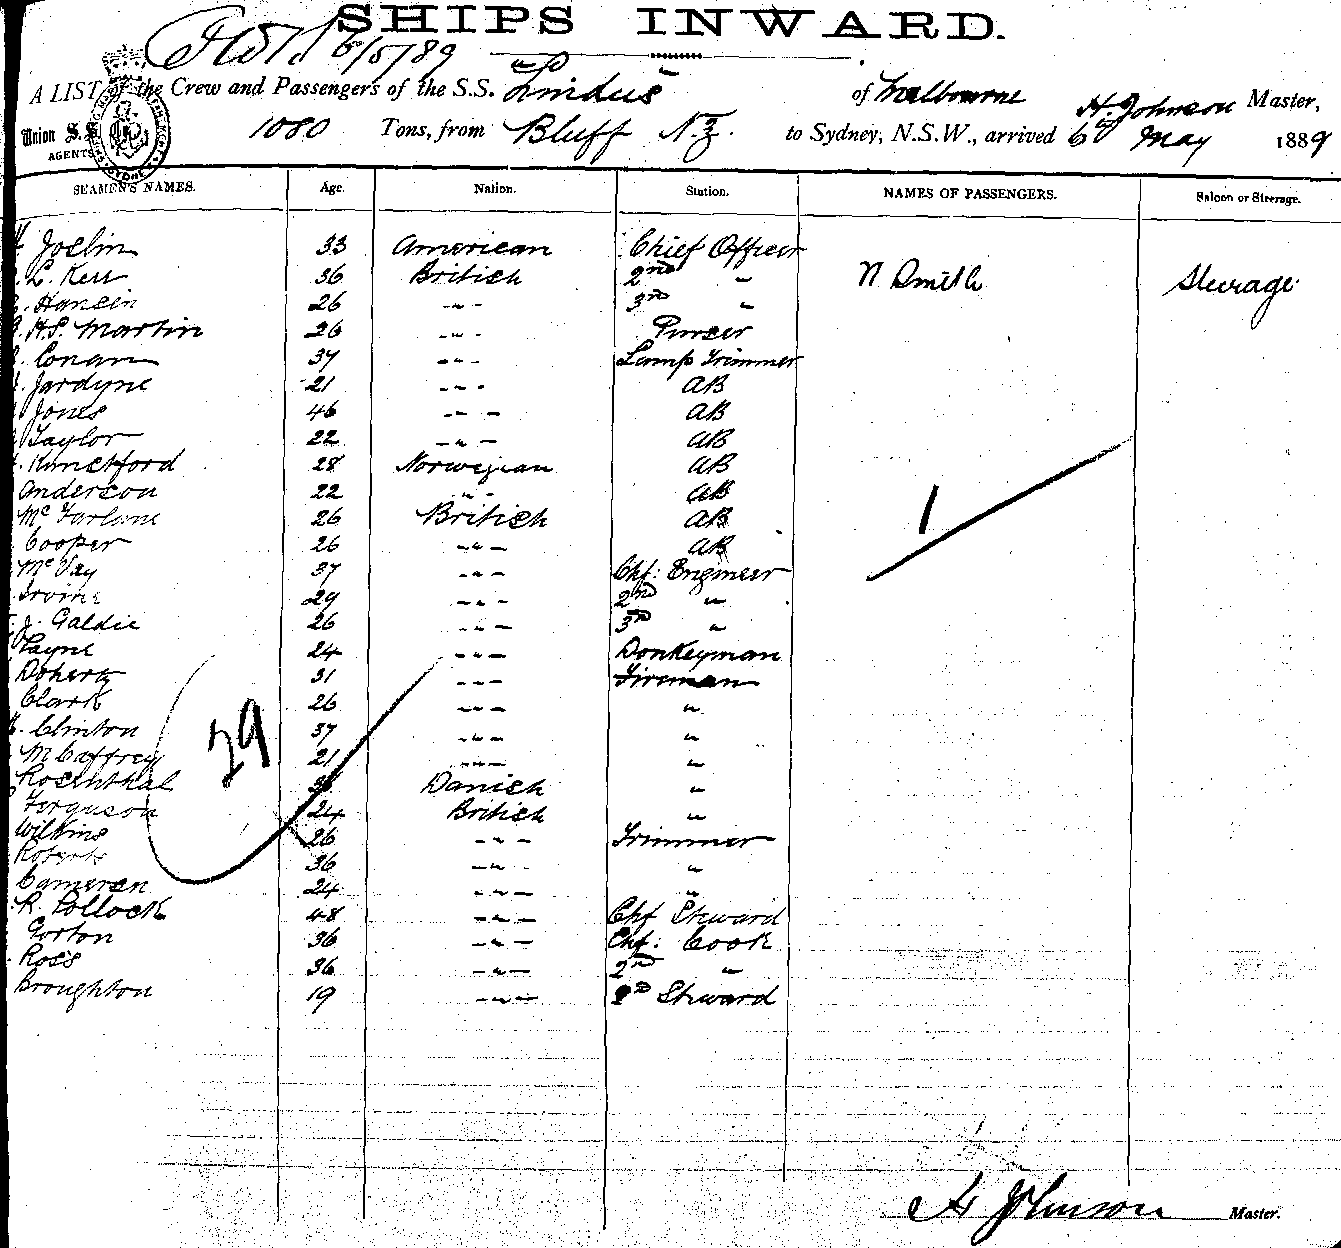 SHIPS INWARD.
6/5/89
A LIST of the Crew and Passengers of the S.S. Lindus of Melbourne H. Johnson Master,
Union S.S. 1080 Tons, from Bluff N.Z. to Sydney, N.S.W., arrived 6th May 1889
AGENTS
SEAMEN'S NAMES. Age. Nation. Station. NAMES OF PASSENGERS. Saloon or Steerage.
Joclin 33 American Chief Officer
L. Kerr 36 British 2nd " N Smith Steerage
Hansen 26 - " - 3rd "
H.S. Martin 26 - " - Purser
Conan 37 - " - Lamp Trimmer
Jardyne 21 - " - AB
Jones 46 - " - AB
Taylor 22 - " - AB
28 Norwegian AB
Anderson 22 - " - AB
McFarlane 26 British AB 1
Cooper 26 - " - AB
McVay 37 - " - Chf: Engineer
Irvine 29 - " - 2nd "
J. Galdie 26 - " - 3rd "
Payne 24 - " - Donkeyman
Doherty 31 - " - Fireman
Clark 26 - " - "
Clinton 37 - " - "
McCaffrey 21 - " - "
29
Rosenthal Danish "
Ferguson 24 British "
Wilkins 26 - " - Trimmer
Roberts 36 - " - "
Cameron 24 - " - "
R. Pollock 48 - " - Chf Steward
Gorton 36 - " - Chf: Cook
Ross 36 - " - 2nd "
Broughton 19 - " - 2nd Steward
H Johnson Master.